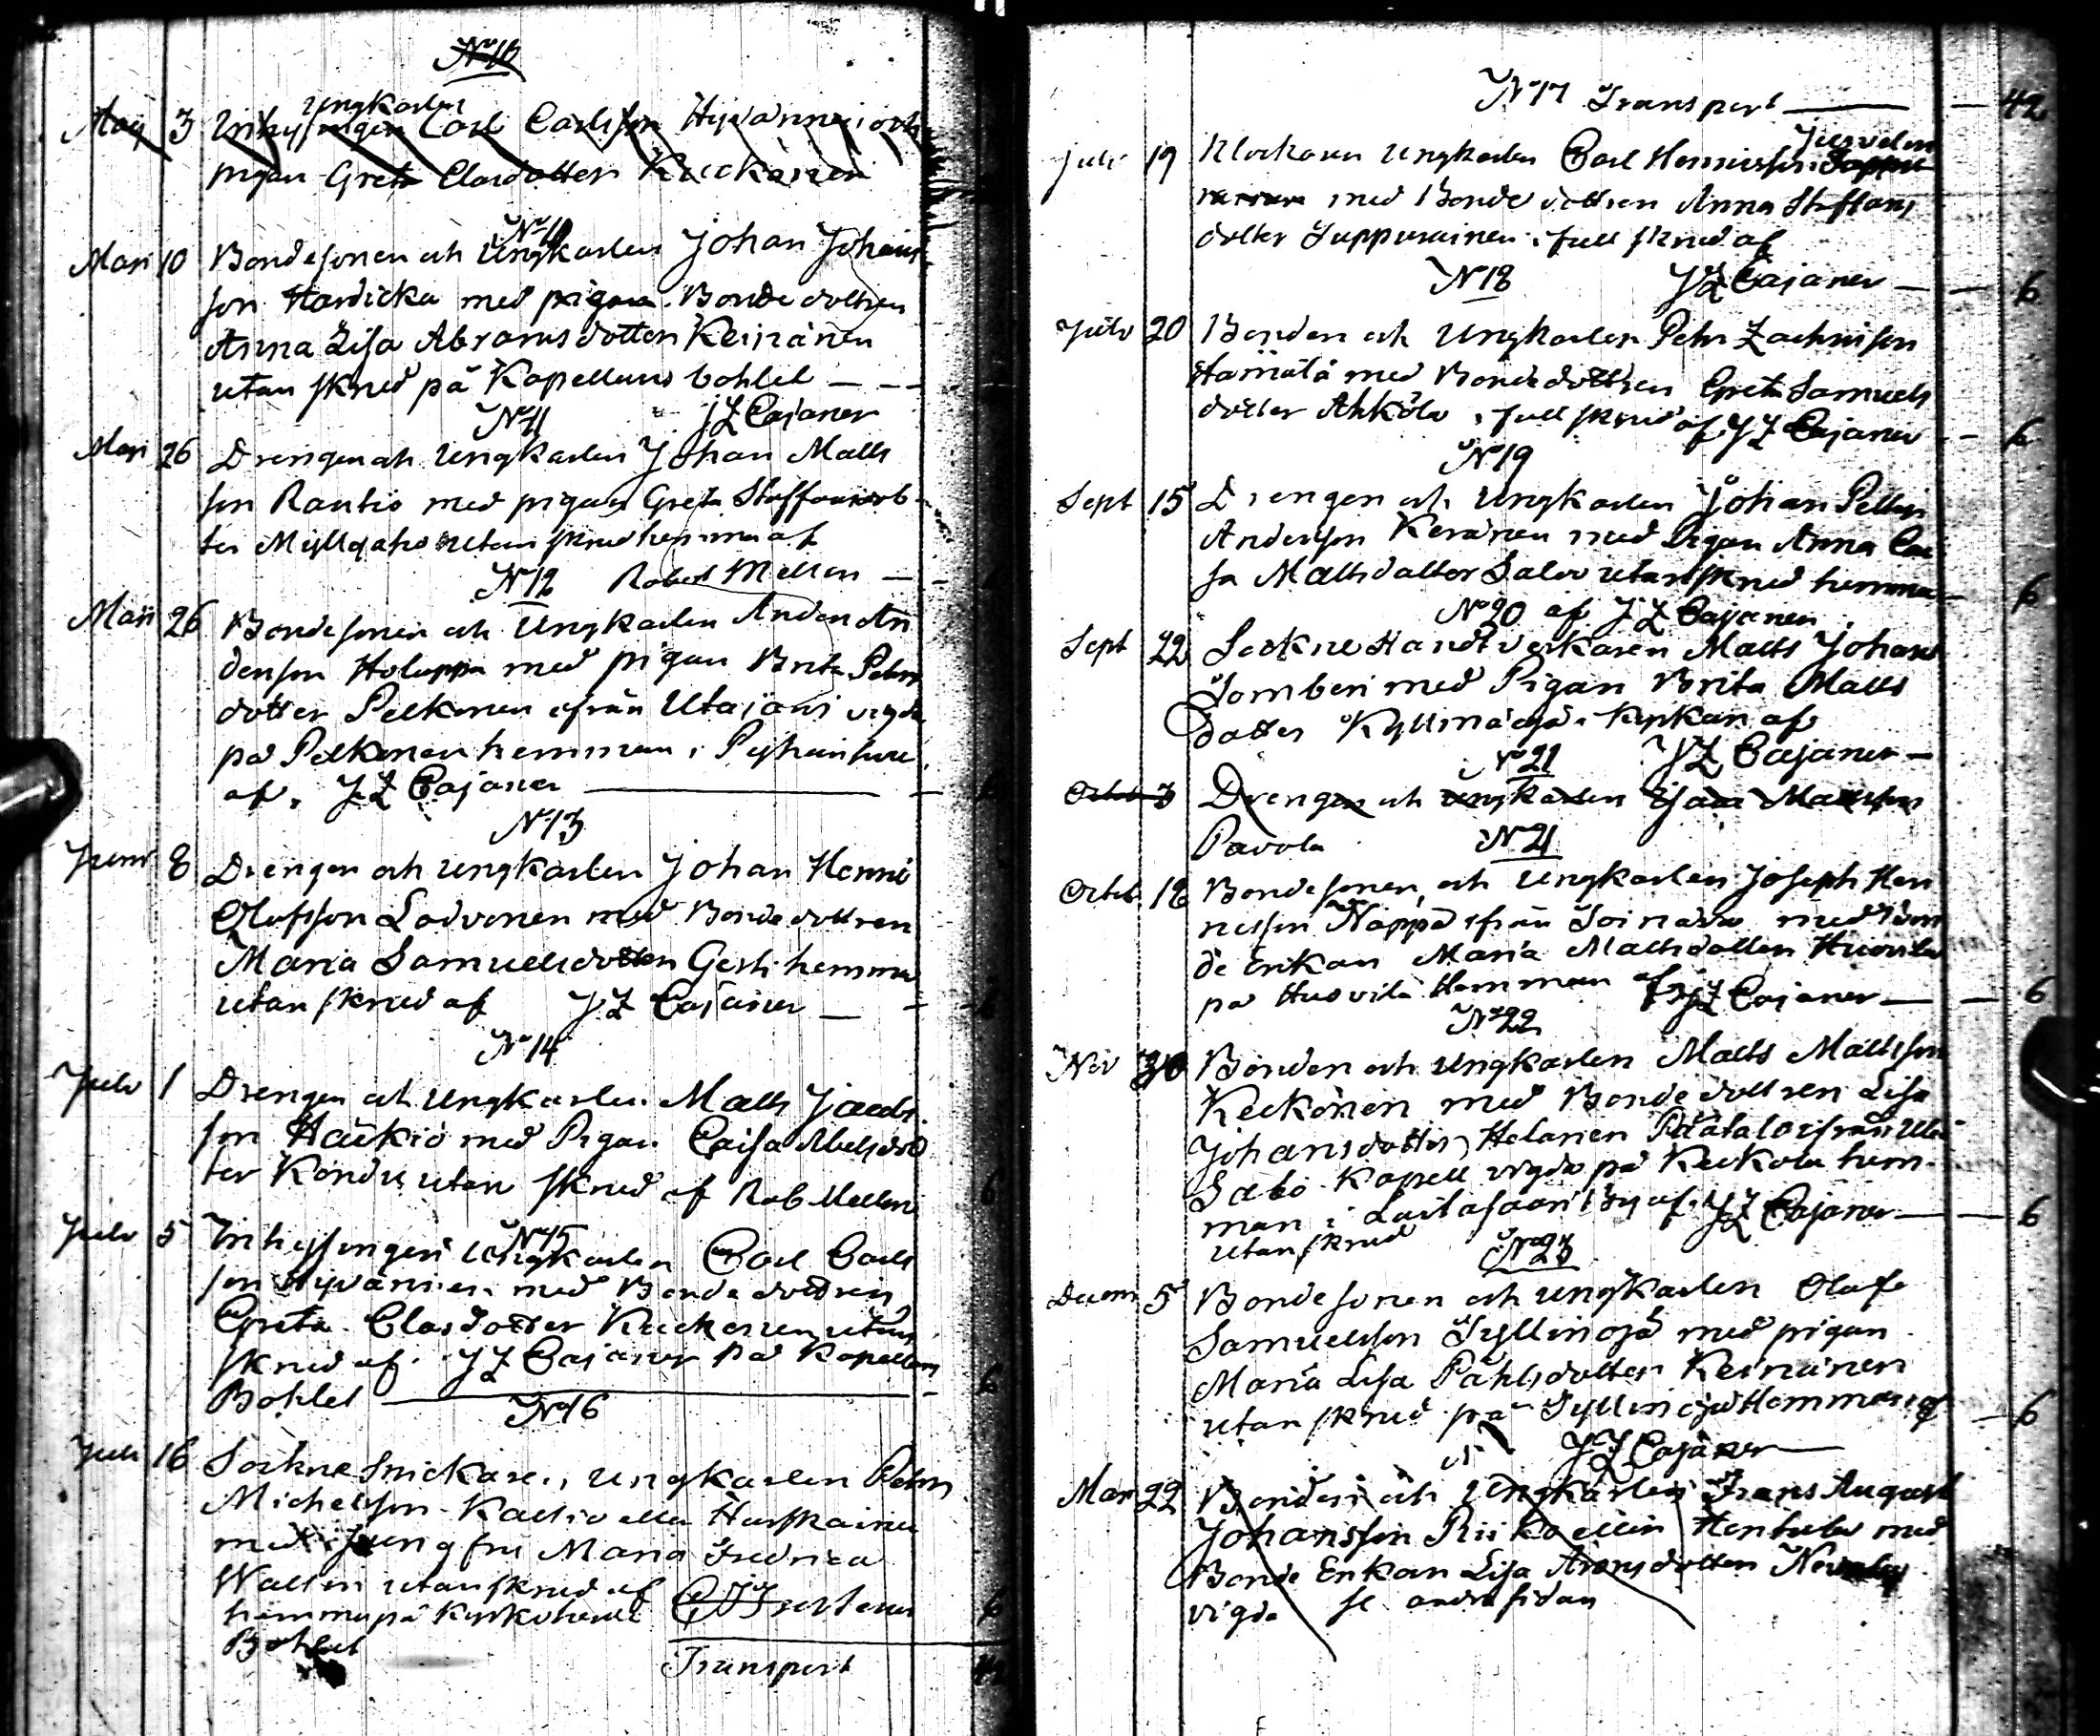 No 10
Maij 3 Inhysingen ungkarlen Carl Carlsson Hyvärinen och
pigan Greta Clasdotter Keckonen
No 10
Maji 10 Bondesonen och Ungkarlen Johan Johans
son Hardicka med pigan Bonde dottren
Anna Lisa Abramsdotter Keinänen
utan skrud på Kapellans bohlet
No 11 JZ Cajaner
Maji 26 Drengen och Ungkarlen Johan Matts
son Rautio med pigan Greta Staffansdot
ter Myllyaho utan skrud hemma af
No 12 Robert Mellen
Maji 26 Bondesonen och Ungkarlen Anders An
dersson Holappa med pigan Brita Pehrs
dotter Pelkonen ifrån Utajärvi vigda
på Pelkonen hemman i
af JZ Cajaner
No 13
Junii 8 Drengen och Ungkarlen Johan Henric
Olofsson Lodvonen med Bonde dottren
Maria Samuelsdotter Gesti hemma
utan skrud af JZ Cajaner
No 14
Julii 1 Drengen och Ungkarlen Matts Jacobs
son Häikiö med Pigan Caisa Abelsdot
ter Kondu utan skrud af Rob Mellen 6
No 15
Julii 5 Inhysingen Ungkarlen Carl Carls
son Hyvärinen med Bonde dottren
Greta Clasdotter Keckonen utan
skrud af JZ Cajaner på Kapellans 6
Bohlet
No 16
Julii 16 Sockne Snickaren, Ungkarlen Pehr
Michelsson Kaltio eller Hurskainen
med Jungfru Maria Fredrica
Wallin utan skrud af
hemma på Kyrkoherde 6
Bohlet
Transport
No 17 Transport 42
Julii 19 Klockaren Ungkarlen Carl Henricsson Juvelin
med Bonde dottren Anna Staffans
dotter Juppurainen i full skrud af
No 18 JZ Cajaner 6
Julii 20 Bonden och Ungkarlen Pehr Zachrisson
Hämälä med Bondedottren Greta Samuels
dotter Ahkola i full skrud af JZ Cajaner 6
No 19
Sept 15 Drengen och Ungkarlen Johan Petter
Andersson Keränen med Pigan Anna Cai
sa Mattsdotter Salvo utan skrud hemma 6
No 20 af JZ Cajaner
Sept 22 Sockne Handtverkaren Matts Johans
Tomberi med Pigan Brita Matts
dotter Kyllmäoja i Kyrkan af
No 21 JZ Cajaner
Octob 3 Drengen och Ungkarlen Isaac Mattsson
Pavola
No 21
Octob 12 Bondesonen och Ungkarlen Joseph Hen
ricsson Näppä ifrån med Bon
de Enkan Maria Mattsdotter Huovila
på Huovila Hemman af JZ Cajaner 6
No 22
Nov 30 Bonden och Ungkarlen Matts Mattsson
Keckonen med Bonde dottren Lisa
Johansdotter Helanen Päätalo ifrån Uleå
Säbo Kapell vigda på Keckola hem
man i Laitasaari by af JZ Cajaner 6
utan skrud
No 23
Decem 5 Bondesonen och Ungkarlen Olof
Samuelsson Jyllinoja med pigan
Maria Lisa Påhlsdotter Keinänen
utan skrud på Jyllinoja Hemman af 6
JZ Cajaner
Mars 22 Bonden och Ungkarlen Frans August
Johansson Riiko eller Hentula med
Bonde Enkan Lisa Aronsdotter
vigda se andra sidan